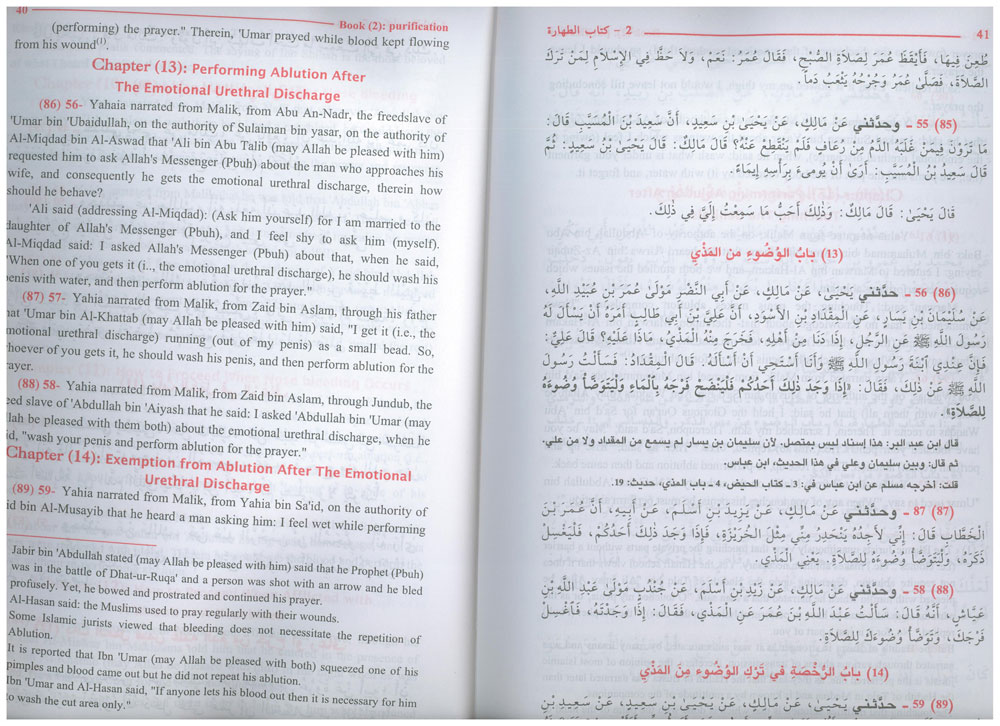 40
Book (2): purification
(performing) the prayer." Therein, 'Umar prayed while blood kept flowing
from his wound(1).
Chapter (13): Performing Ablution After
The Emotional Urethral Discharge
(86) 56- Yahaia narrated from Malik, from Abu An-Nadr, the freedslave of
'Umar bin 'Ubaidullah, on the authority of Sulaiman bin yasar, on the authority of
Al-Miqdad bin Al-Aswad that 'Ali bin Abu Talib (may Allah be pleased with him)
requested him to ask Allah's Messenger (Pbuh) about the man who approaches his
wife, and consequently he gets the emotional urethral discharge, therein how
should he behave?
'Ali said (addressing Al-Miqdad): (Ask him yourself) for I am married to the
daughter of Allah's Messenger (Pbuh), and I feel shy to ask him (myself).
Al-Miqdad said: I asked Allah's Messenger (Pbuh) about that, when he said,
"When one of you gets it (i.., the emotional urethral discharge), he should wash his
penis with water, and then perform ablution for the prayer."
(87) 57- Yahia narrated from Malik, from Zaid bin Aslam, through his father
hat 'Umar bin Al-Khattab (may Allah be pleased with him) said, "I get it (i.e., the
motional urethral discharge) running (out of my penis) as a small bead. So,
whoever of you gets it, he should wash his penis, and then perform ablution for the
rayer.
(88) 58- Yahia narrated from Malik, from Zaid bin Aslam, through Jundub, the
eed slave of 'Abdullah bin 'Aiyash that he said: I asked 'Abdullah bin 'Umar (may
llah be pleased with them both) about the emotional urethral discharge, when he
id, "wash your penis and perform ablution for the prayer."
Chapter (14): Exemption from Ablution After The Emotional
Urethral Discharge
(89) 59- Yahia narrated from Malik, from Yahia bin Sa'id, on the authority of
id bin Al-Musayib that he heard a man asking him: I feel wet while performing
Jabir bin 'Abdullah stated (may Allah be pleased with him) said that he Prophet (Pbuh)
was in the battle of Dhat-ur-Ruqa' and a person was shot with an arrow and he bled
profusely. Yet, he bowed and prostrated and continued his prayer.
Al-Hasan said: the Muslims used to pray regularly with their wounds.
Some Islamic jurists viewed that bleeding does not necessitate the repetition of
Ablution.
It is reported that Ibn 'Umar (may Allah be pleased with both) squeezed one of his
pimples and blood came out but he did not repeat his ablution.
Ibn 'Umar and Al-Hasan said, "If anyone lets his blood out then it is necessary for him
to wash the cut area only."
2 - كتاب الطهارة
41
طُعِنَ فِيهَا، فَأَيْقَظَ عُمَرَ لِصَلاَةِ الصُّبْحِ، فَقَالَ عُمَرُ: نَعَمْ، وَلاَ حَظَّ فِي الإِسْلاَمِ لِمَنْ تَرَكَ
الصَّلاَةَ، فَصَلَّى عُمَرُ وَجُرْحُهُ يَثْعَبُ دَماً.
(85) 55 ـ وحدّثني عَنْ مَالِكٍ، عَنْ يَحْيَىٰ بْنِ سَعِيدٍ، أَنَّ سَعِيدَ بْنَ الْمُسَيَّبِ قَالَ:
مَا تَرَوْنَ فِيمَنْ غَلَبَهُ الدَّمُ مِنْ رُعَافٍ فَلَمْ يَنْقَطِعْ عَنْهُ؟ قَالَ مَالِكٌ: قَالَ يَحْيَىٰ بْنُ سَعِيدٍ: ثُمَّ
قَالَ سَعِيدُ بْنُ الْمُسَيَّبِ: أَرَىٰ أَنْ يُومِىءَ بِرَأْسِهِ إِيمَاءً.
قَالَ يَحْيَىٰ: قَالَ مَالِكٌ: وَذَلِكَ أَحَبُّ مَا سَمِعْتُ إِلَيَّ فِي ذٰلِكَ.
(13) بابُ الوُضُوءِ من المَذْيِ
(86) 56 ـ حدّثني يَحْيَىٰ، عَنْ مَالِكٍ، عَنْ أَبِي النَّضْرِ مَوْلَىٰ عُمَرَ بْنِ عُبَيْدِ اللَّهِ،
عَنْ سُلَيْمَانَ بْنِ يَسَارٍ، عَنِ الْمِقْدَادِ بْنِ الأَسْوَدِ، أَنَّ عَلِيَّ بْنَ أَبِي طَالِبٍ أَمَرَهُ أَنْ يَسْأَلَ لَهُ
رَسُولَ اللَّهِ ﷺ عَنِ الرَّجُلِ، إِذَا دَنَا مِنْ أَهْلِهِ، فَخَرَجَ مِنْهُ الْمَذْيُ، مَاذَا عَلَيْهِ؟ قَالَ عَلِيٌّ:
فَإِنَّ عِنْدِي ابْنَةَ رَسُولِ اللَّهِ ﷺ وَأَنَا أَسْتَحِي أَنْ أَسْأَلَهُ. قَالَ الْمِقْدَادُ: فَسَأَلْتُ رَسُولَ
اللَّهِ ﷺ عَنْ ذٰلِكَ، فَقَالَ: «إِذَا وَجَدَ ذٰلِكَ أَحَدُكُمْ فَلْيَنْضَحْ فَرْجَهُ بِالْمَاءِ وَلْيَتَوَضَّأْ وُضُوءَهُ
لِلصَّلاَةِ».
قال ابن عبد البر: هذا إسناد ليس بمتصل، لأن سليمان بن يسار لم يسمع من المقداد ولا من علي.
ثم قال: وبين سليمان وعلي في هذا الحديث، ابن عباس.
قلت: أخرجه مسلم عن ابن عباس في: 3 ـ كتاب الحيض، 4 ـ باب المذي، حديث: 19.
(87) 87 ـ وحدّثني عَنْ مَالِكٍ، عَنْ يَزِيدَ بْنِ أَسْلَمَ، عَنْ أَبِيهِ، أَنَّ عُمَرَ بْنَ
الْخَطَّابِ قَالَ: إِنِّي لأَجِدُهُ يَنْحَدِرُ مِنِّي مِثْلَ الْخُرَيْزَةِ، فَإِذَا وَجَدَ ذٰلِكَ أَحَدُكُمْ، فَلْيَغْسِلْ
ذَكَرَهُ، وَلْيَتَوَضَّأْ وُضُوءَهُ لِلصَّلاَةِ. يَعْنِي الْمَذْيَ.
(88) 58 ـ وحدّثني عَنْ مَالِكٍ، عَنْ زَيْدِ بْنِ أَسْلَمَ، عَنْ جُنْدُبٍ مَوْلَىٰ عَبْدِ اللَّهِ بْنِ
عَيَّاشٍ، أَنَّهُ قَالَ: سَأَلْتُ عَبْدَ اللَّهِ بْنَ عُمَرَ عَنِ الْمَذْيِ، فَقَالَ: إِذَا وَجَدْتَهُ، فَاغْسِلْ
فَرْجَكَ، وَتَوَضَّأْ وُضُوءَكَ لِلصَّلاَةِ.
(14) بابُ الرُّخْصَةِ في تَرْكِ الوُضُوءِ مِنَ المَذْيِ
(89) 59 ـ حدّثني يَحْيَىٰ، عَنْ مَالِكٍ، عَنْ يَحْيَىٰ بْنِ سَعِيدٍ، عَنْ سَعِيدِ بْنِ